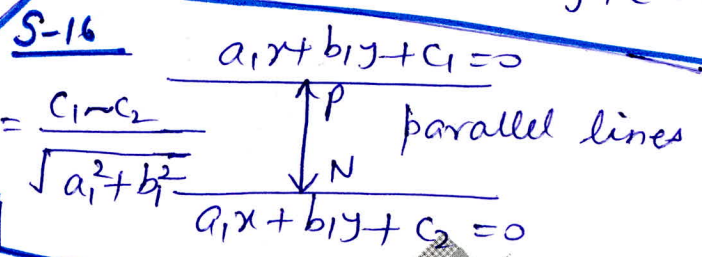 S-16
a₁x + b₁y + c₁ = 0
= c₁~c₂ / √(a₁² + b₁²)
P
parallel lines
N
a₁x + b₁y + c₂ = 0